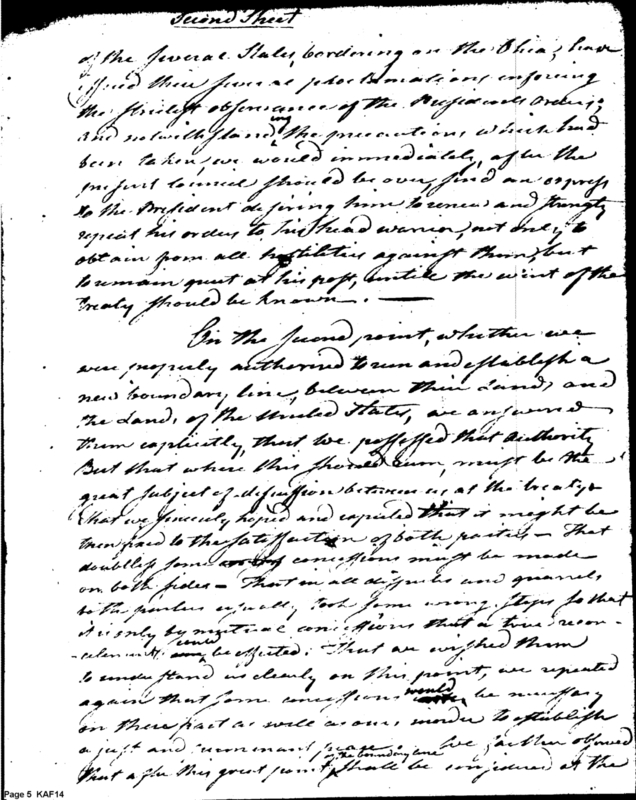 Second Sheet
of the several States, bordering on the Ohio, have
issued their several proclamations enforcing
the strictest observance of the Presidents orders;
and notwithstanding the precautions which had
been taken, we would immediately, after the
present Council should be over, send an express
to the President desiring him to renew and strongly
repeat his orders to his head warrior, not only to
abstain from all hostilities against them, but
to remain quiet at his post, until the event of the
Treaty should be known. —
On the second point, whether we
were properly authorised to run and establish a
new boundary line, between their Lands and
the Lands of the United States, we answered
them explicitly, that we possessed that authority
But that where this should run, must be the
great subject of discussion between us at the treaty &
that we sincerely hoped and expected that it might be
then fixed to the satisfaction of both parties — That
doubtless some concessions must be made
on both sides — That in all disputes and quarrels
both parties usually took some wrong steps so that
it is only by mutual concessions that a true recon-
-cilement could be effected. That we wished them
to understand us clearly on this point, we repeated
again that some concessions would be necessary
on their part as well as ours, in order to establish
a just and permanent peace. We further observed
that after this great point, of the boundary line shall be considered at the
Page 5 KAF14